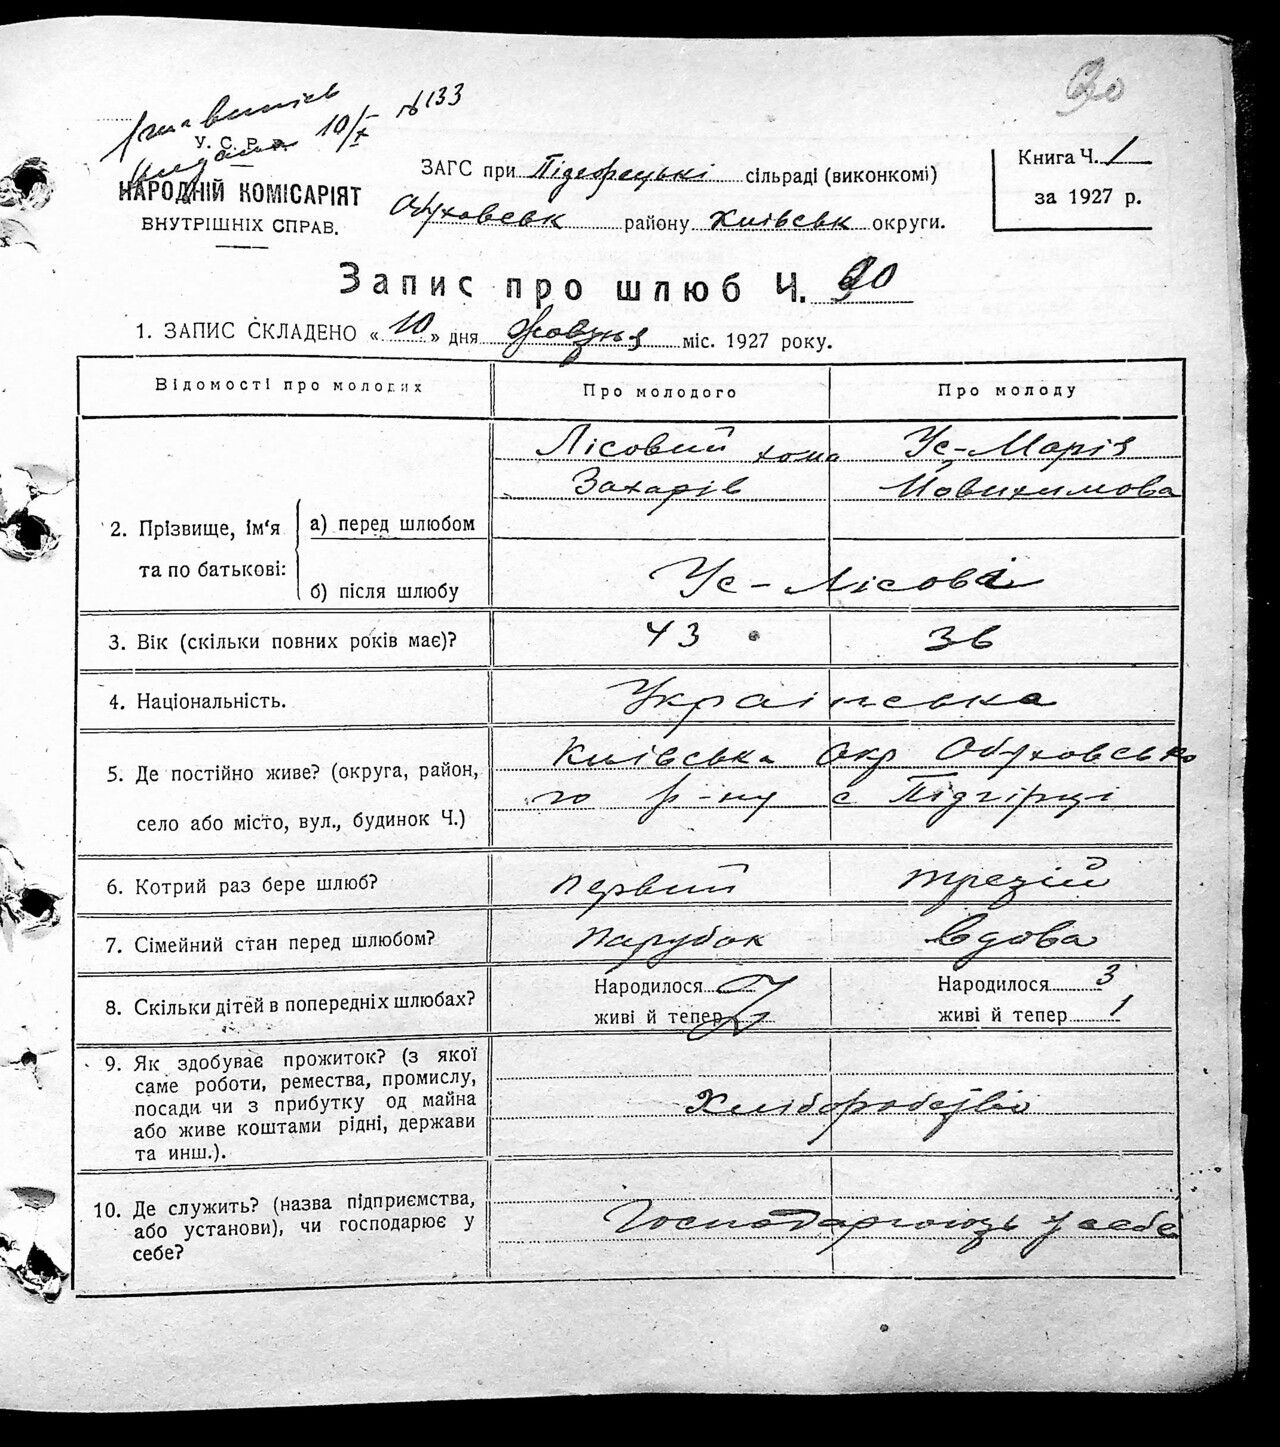 10/X № 133
У. С. Р. Р.
НАРОДНІЙ КОМІСАРІЯТ
ВНУТРІШНІХ СПРАВ.
ЗАГС при Підгорецькі сільраді (виконкомі)
Обуховськ району Київськ округи.
Книга Ч. 1
за 1927 р.
Запис про шлюб Ч.
1. ЗАПИС СКЛАДЕНО « 10 » дня Жовтня міс. 1927 року.
Відомості про молодих
Про молодого
Про молоду
2. Прізвище, ім'я та по батькові:
а) перед шлюбом
Лісовий хома
Захарів
Ус-Марія
Йовихимова
б) після шлюбу
Ус-Лісові
3. Вік (скільки повних років має)?
43
36
4. Національність.
Українська
5. Де постійно живе? (округа, район,
село або місто, вул., будинок Ч.)
Київська Окр Обуховсько
го р-ну с Підгірці
6. Котрий раз бере шлюб?
первий
третій
7. Сімейний стан перед шлюбом?
парубок
вдова
8. Скільки дітей в попередніх шлюбах?
Народилося
живі й тепер
Народилося 3
живі й тепер 1
9. Як здобуває прожиток? (з якої
саме роботи, ремества, промислу,
посади чи з прибутку од майна
або живе коштами рідні, держави
та инш.).
Хліборобство
10. Де служить? (назва підприємства,
або установи), чи господарює у
себе?
Господарюють у себе